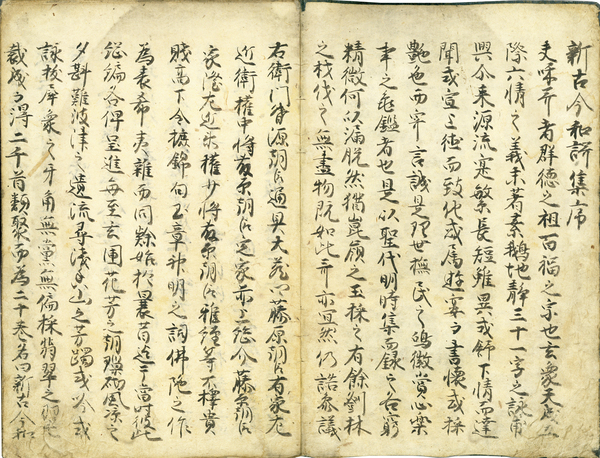 新古今和謌集序
夫和哥者群徳之祖百福之宗也玄象天成五
際六情之義未著素鵞地静三十一字之詠甫
興尓来源流寔繁長短雖異或紓下情而達
聞或宣上徳而致化或属遊宴而書懐或採
艶色而寄言誠是理世撫民之鴻徽賞心楽
事之亀鑑者也是以聖代明時集而録之各窮
精微何以漏脱然猶崑嶺之玉採之有餘鄧林
之材伐之無盡物既如此哥亦宜然仍詔参議
右衛門督源朝臣通具大蔵卿藤原朝臣有家左
近衛権中将藤原朝臣定家前上総介藤原朝臣
家隆左近衛権少将藤原朝臣雅経等不擇貴
賤高下令摭錦句玉章神明之詞佛陁之作
為表希夷雑而同隷始於曩昔迄于當時彼此
総編各俾呈進毎至玄圃花芳之朝璅砌風凉之
夕斟難波津之遺流尋浅香山之芳躅或吟或
詠抜犀象之牙角無黨無偏採翡翠之羽毛
裁成而得二千首類聚而為二十巻名曰新古今和